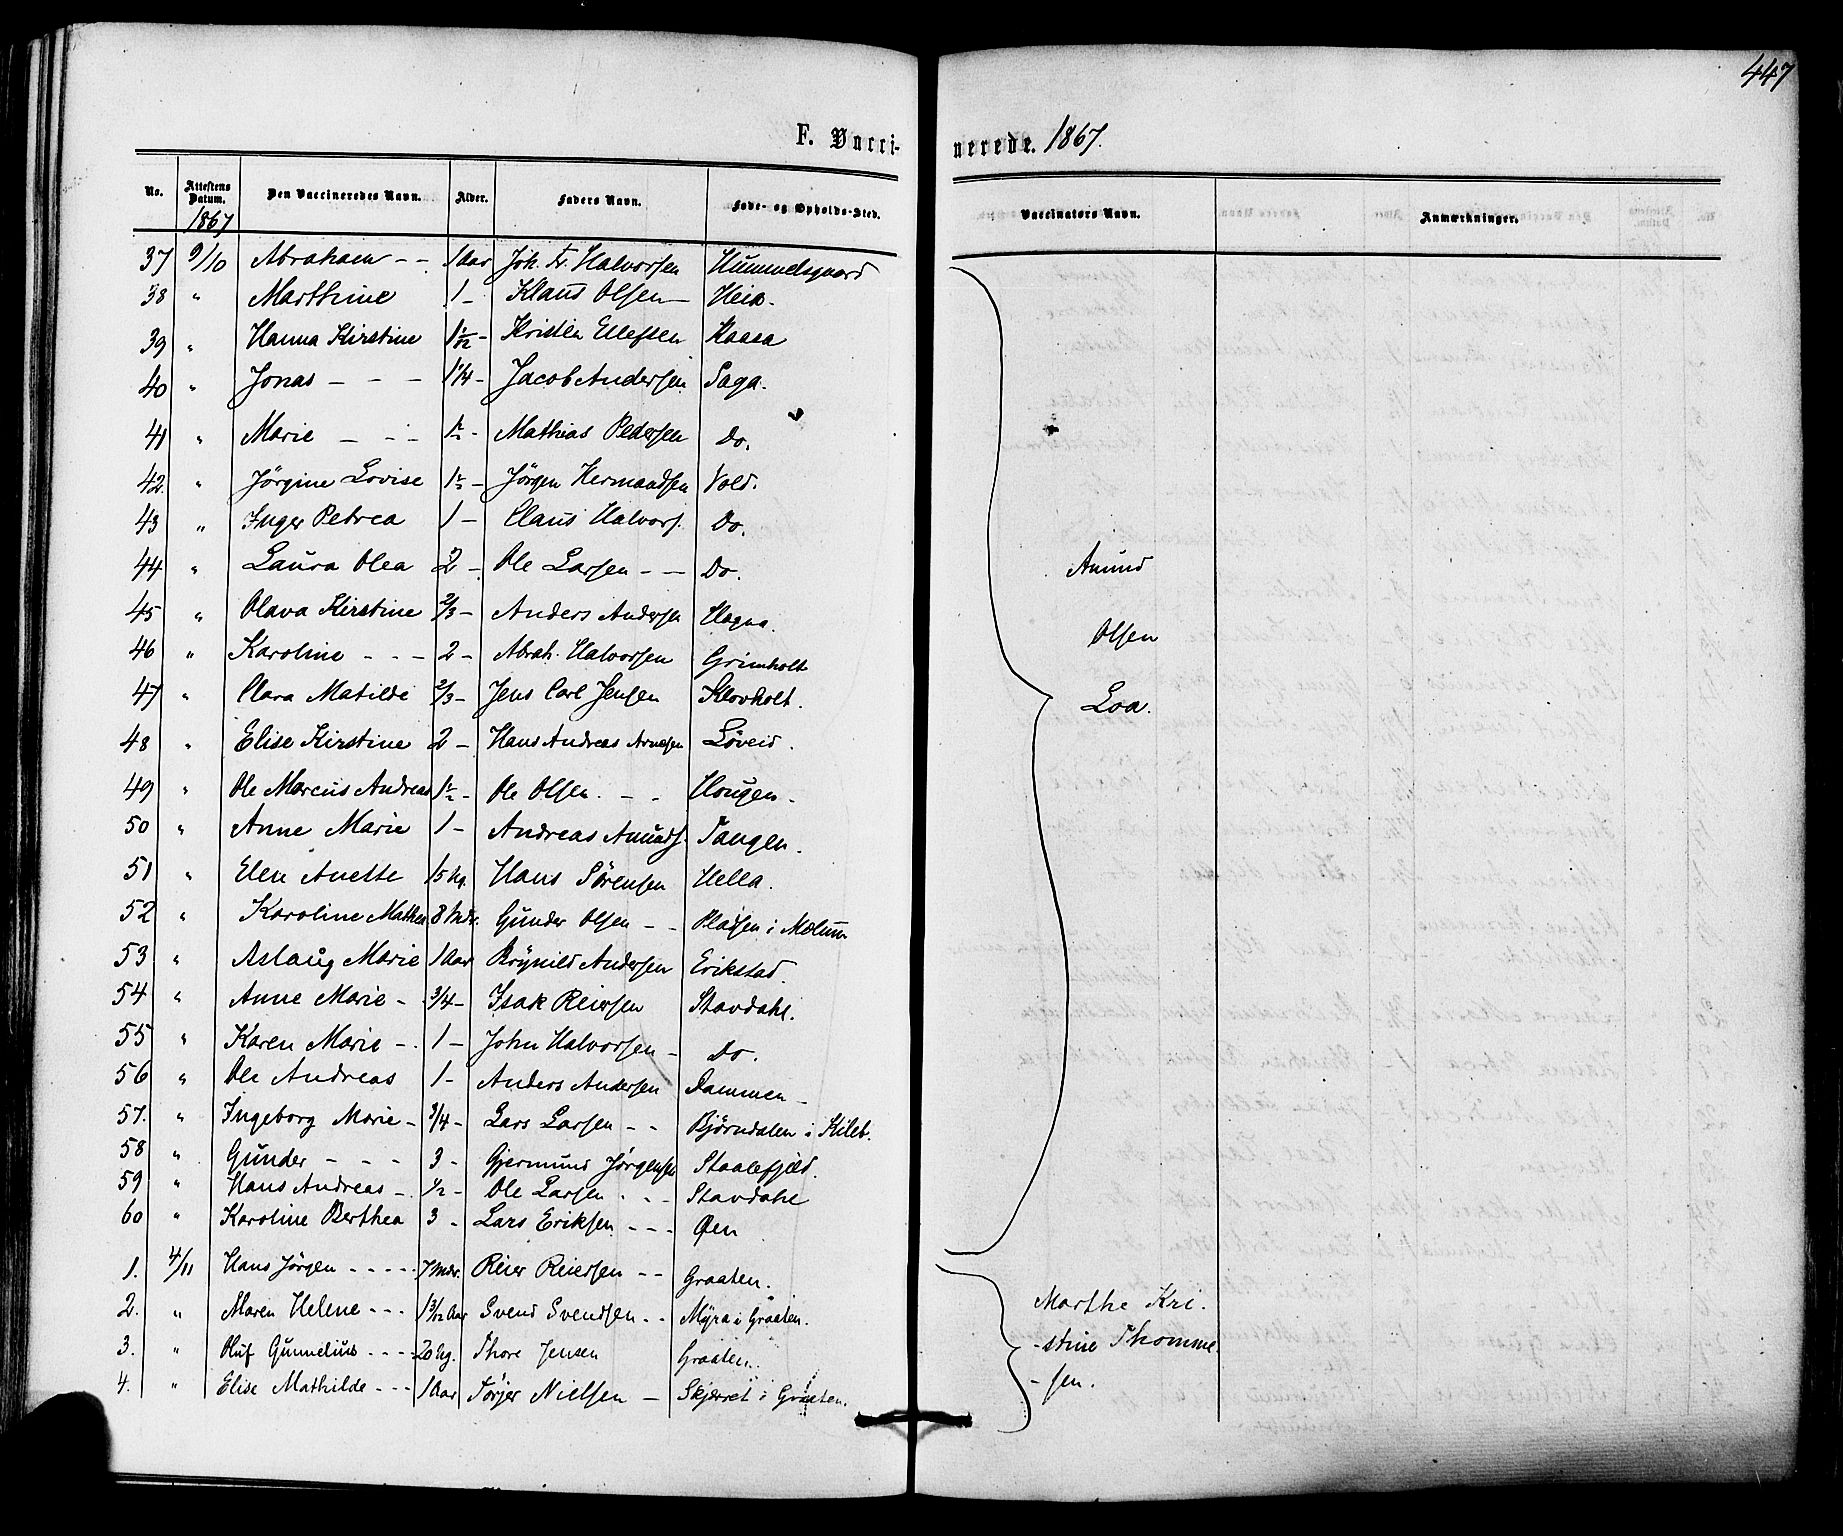 447
F. Vacci- nerede. 1867.
No. Attestens Datum. Den Vaccineredes Navn. Alder. Faders Navn. Føde- og Opholds-Sted. Vaccinators Navn. Anmærkninger.
1867
37 9/10 Abraham - - 1 Aar Joh. Fr. Halvorsen Hummelsgaard
38 " Marthine 1 - Klaus Olsen - Heia.
39 " Hanna Kirstine 1 1/12 - Kristen Ellefsen Kaasa
40 " Jonas - - - 1 1/4 - Jacob Andersen Saga.
41 " Marie - - - 1/2 - Mathias Pedersen Do.
42. " Jörgine Lovise 1 1/2 - Jörgen Hermandsen Vold.
43 " Inger Petrea 1 - Claus Halvors. Do.
44 " Laura Olea 2 - Ole Larsen - - Do.
45 " Olava Kirstine 2/3 - Anders Andersen Hagna.
46 " Karoline - - - 2 - Abrah. Halvorsen Grimholt
47 " Clara Matilde 2/3 - Jens Carl Jensen Klovholt.
48 " Elise Kirstine 2 - Hans Andreas Arnesen Löveid.
49 " Ole Marcus Andreas 1 1/2 - Ole Olsen. - - Hougen.
50 " Anne Marie 1 - Andreas Amunds. Tangen.
51 " Elen Anette 15 Ug. Hans Sörensen Hella.
52 " Karoline Mathea 8 Mdr. Gunder Olsen - - Pladsen i Mælum
53 " Aslaug Marie 1 Aar Brynild Andersen Erikstad.
54 " Anne Marie - 3/4 - Isak Reiersen Stavdahl.
55 " Karen Marie - 1 - John Halvorsen - Do.
56 " Ole Andreas 1 - Anders Andersen Dammen -
57. " Ingeborg Marie - 3/4 - Lars Larsen - - Björndalen i Kileb.
58 " Gunder - - - 3 - Gjermund Jörgensen Staalefjeld.
59 " Hans Andreas - 1/2 - Ole Larsen . - - Stavdahl
60 " Karoline Berthea 3 - Lars Eriksen - - - Øen
Amund
Olsen
Loa.
1. 4/11 Hans Jörgen - - - - 7 Mdr. Reier Reiersen - - Graaten.
2. " Maren Helene - - - 1 3/12 Aar Svend Svendsen - - Myra i Graaten.
3. " Oluf Gunnelius - - - - 20 Ug. Thore Jensen Graaten.
4. " Elise Mathilde - - - 1 Aar Törjer Nielsen - Skjerret i Graaten.
Marthe Kri-
-stine Thomme-
-sen.